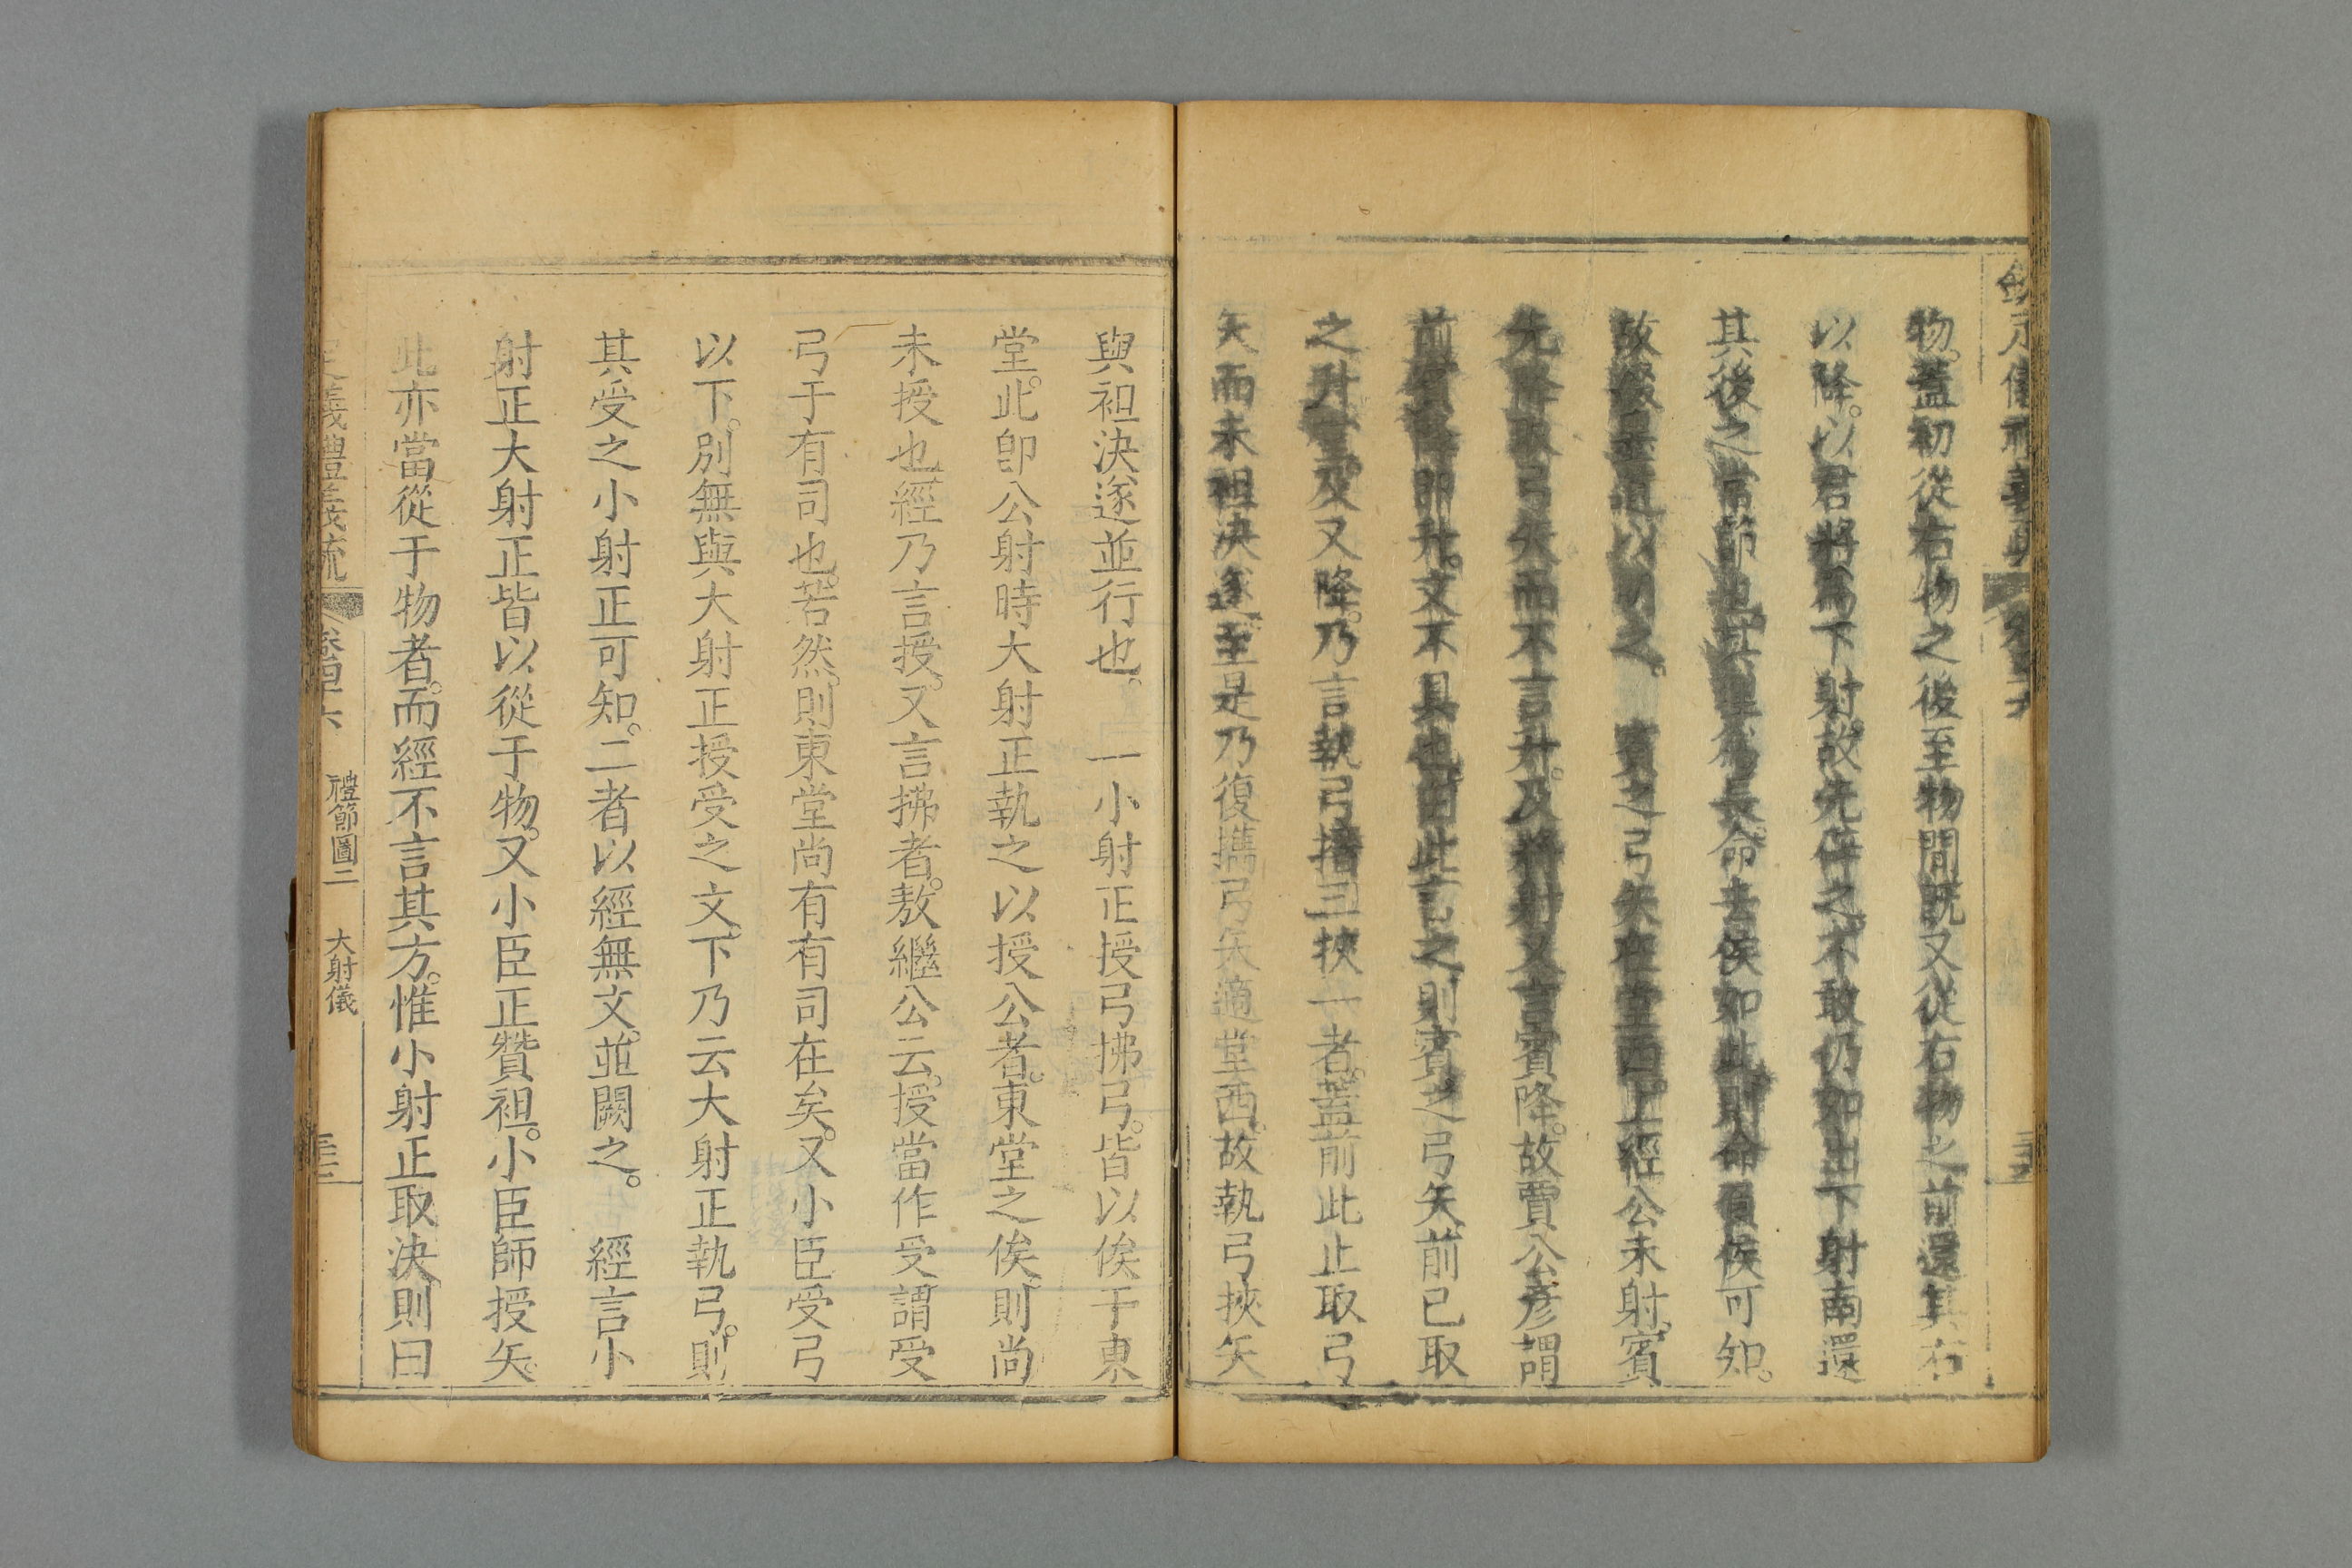 物。蓋初從右物之後至物間既又從右物之前還其右
以降。以君將爲下射。故先俟之。不敢仍如出下射南還
其後之常節也其理爲長。命去侯如此。則命負侯可知。
故
以明之。　賓之弓矢在堂西。上經公未射。賓
先降取弓矢而不言升。及將射又言賓降。故賈公彥謂
前賓降卽升。文不具也。由此言之。則賓之弓矢。前已取
之升堂及又降。乃言執弓搢三挾一者。蓋前此止取弓
矢而未袒決遂。至是乃復攜弓矢適堂西。故執弓挾矢
與袒決遂並行也。　一小射正授弓拂弓。皆以俟于東
堂。此卽公射時大射正執之以授公者。東堂之俟。則尚
未授也。經乃言授。又言拂者。敖繼公云。授當作受。謂受
弓于有司也。若然。則東堂尚有有司在矣。又小臣受弓
以下。別無與大射正授受之文。下乃云大射正執弓。則
其受之小射正可知。二者以經無文。並闕之。　經言小
射正大射正皆以從于物。又小臣正贊袒。小臣師授矢。
此亦當從于物者。而經不言其方。惟小射正取決則曰
義禮義疏　卷四十六　禮節圖二　大射儀